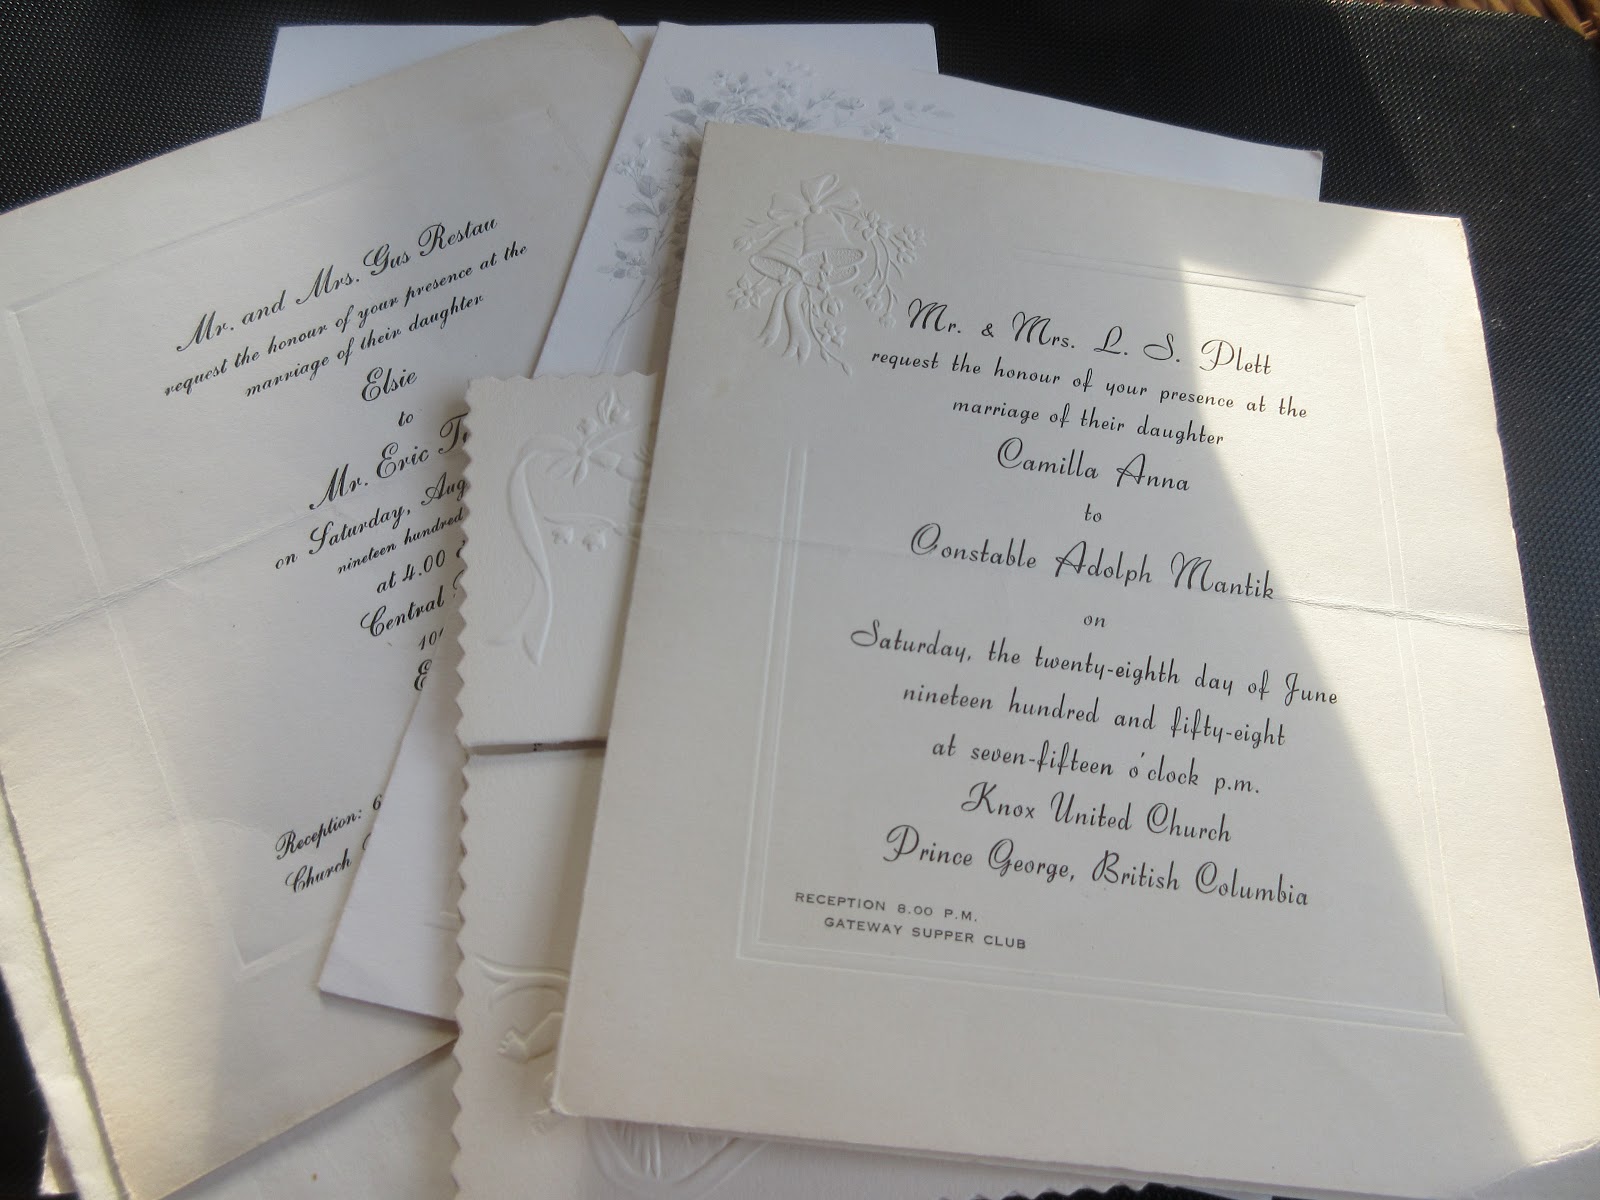 Mr. and Mrs. Gus Restau
request the honour of your presence at the
marriage of their daughter
Elsie
to
Mr. Eric
on Saturday,
nineteen hundred
at 4.00
Central
Reception: 6
Church
Mr. & Mrs. L. S. Plett
request the honour of your presence at the
marriage of their daughter
Camilla Anna
to
Constable Adolph Mantik
on
Saturday, the twenty-eighth day of June
nineteen hundred and fifty-eight
at seven-fifteen o'clock p.m.
Knox United Church
Prince George, British Columbia
RECEPTION 8.00 P.M.
GATEWAY SUPPER CLUB